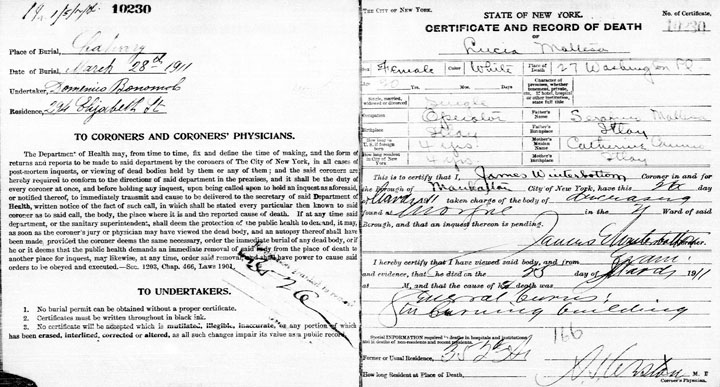 10230
Place of Burial,
Date of Burial, March 28th 1911
Undertaker, Domenico Bonomolo
Residence, 234 Elizabeth St
TO CORONERS AND CORONERS' PHYSICIANS.
The Department of Health may, from time to time, fix and define the time of making, and the form of
returns and reports to be made to said department by the coroners of The City of New York, in all cases of
post-mortem inquests, or viewing of dead bodies held by them or any of them; and the said coroners are
hereby required to conform to the directions of said department in the premises, and it shall be the duty of
every coroner at once, and before holding any inquest, upon being called upon to hold an inquest as aforesaid,
or notified thereof, to immediately transmit and cause to be delivered to the secretary of said Department of
Health, written notice of the fact of such call, in which shall be stated every particular then known to said
coroner as to said call, the body, the place where it is and the reported cause of death. If at any time said
department, or the sanitary superintendent, shall deem the protection of the public health to demand, it may,
as soon as the coroner's jury or physician may have viewed the dead body, and an autopsy thereof shall have
been made, provided the coroner deems the same necessary, order the immediate burial of any dead body, or if
he or it deems that the public health demands an immediate removal of such body from the place of death to
another place for inquest, may likewise, at any time, order said removal, and shall have power to cause said
orders to be obeyed and executed.—Sec. 1203, Chap. 466, Laws 1901.
UNDERTAKERS.
1. No burial permit can be obtained without a proper certificate.
2. Certificates must be written throughout in black ink.
3. No certificate will be accepted which is mutilated, illegible, inaccurate, or any portion of which
has been erased, interlined, corrected or altered, as all such changes impair its value as a public record.
The City of New York.
STATE OF NEW YORK.
No. of Certificate,
CERTIFICATE AND RECORD OF DEATH
10230
OF
Lucia Maltese
Sex Female Color White Place of Death 27 Washington Pl
Yrs. Mos. Days.
Character of premises, whether tenement, private, etc. If hotel, hospital or other institution, state full title
Single, married, widowed or divorced Single
Occupation Operator Father's Name Serafino Maltese
Birthplace Italy Father's Birthplace Italy
How long in U. S. if foreign born 4 yrs. Mother's Maiden Name Catherine
How long resident in City of New York 4 yrs Mother's Birthplace Italy
This is to certify that I, James Winterbottom Coroner in and for
the Borough of Manhattan City of New York, have this
March taken charge of the body of deceased
found at Morgue in the Ward of said
Borough, and that an inquest thereon is pending.
James Winterbottom Coroner.
I hereby certify that I have viewed said body, and from Exam.
and evidence, that he died on the 25 day of March 1911
at M, and that the cause of death was
General burns!
in burning building
166
Special INFORMATION required in deaths in hospitals and institutions
and in deaths of non-residents and recent residents.
Former or Usual Residence,
How long Resident at Place of Death,
M. D
Coroner's Physician.